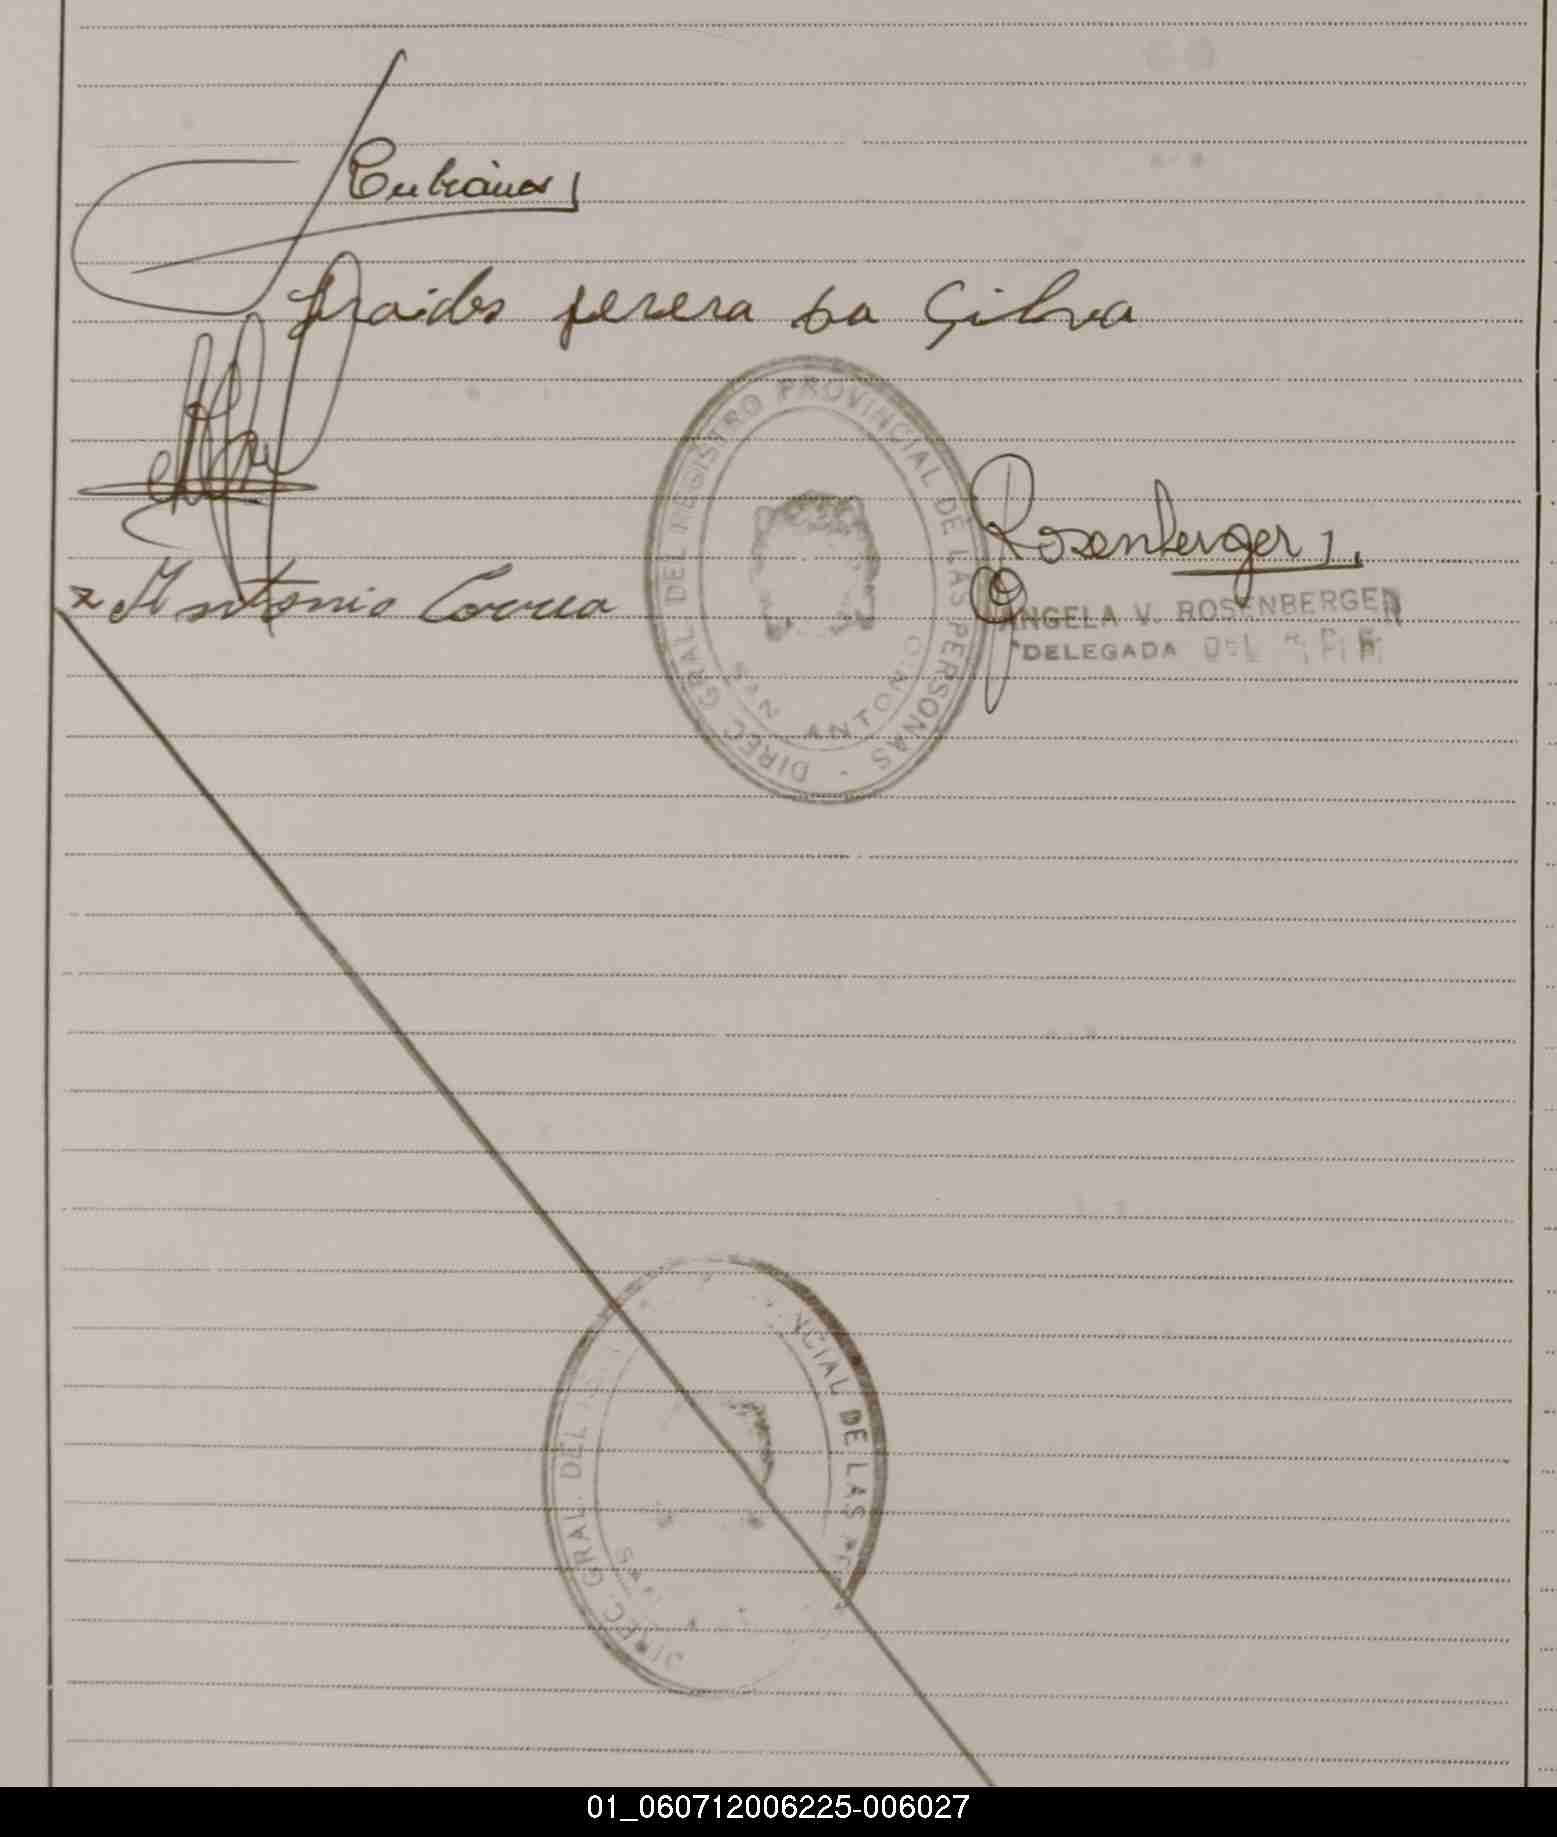 perera da Silva
Rosenberger
Antonio Correa
DIREC. GRAL. DEL REGISTRO PROVINCIAL DE LAS PERSONAS
SAN ANTONIO
ANGELA V. ROSENBERGER
DELEGADA DEL R. P. P.
DIREC. GRAL. DEL NCIAL DE LAS
01_060712006225-006027